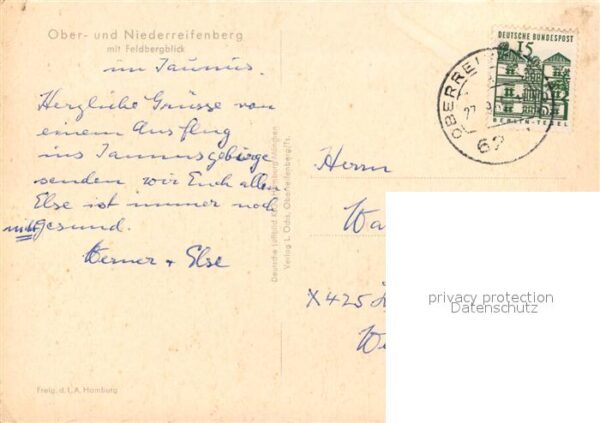 Ober- und Niederreifenberg
mit Feldbergblick
im Taunus.
Herzliche Grüsse von
einem Ausflug
ins Taunusgebirge
senden wir Euch allen
Else ist immer noch
nicht gesund.
Werner + Else
Freig. d. L. A. Hamburg
Deutsche Luftbild
Verlag L. Ochs, Oberreifenberg/Ts.
DEUTSCHE BUNDESPOST
15
BERLIN-TEGEL
OBERREI
27
62
Herrn
Wa
X425
We
privacy protection
Datenschutz